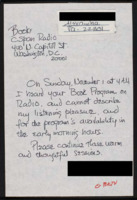 Books
C-Span Radio
400 N Capitol St.
Washington, D.C.
20001
On Sunday November 1 at 4:14
I heard your Book Program on
Radio, and cannot describe
my listening pleasure, and
for the program's availability in
the early morning hours.
Please continue these warm
and thoughtful sessions.